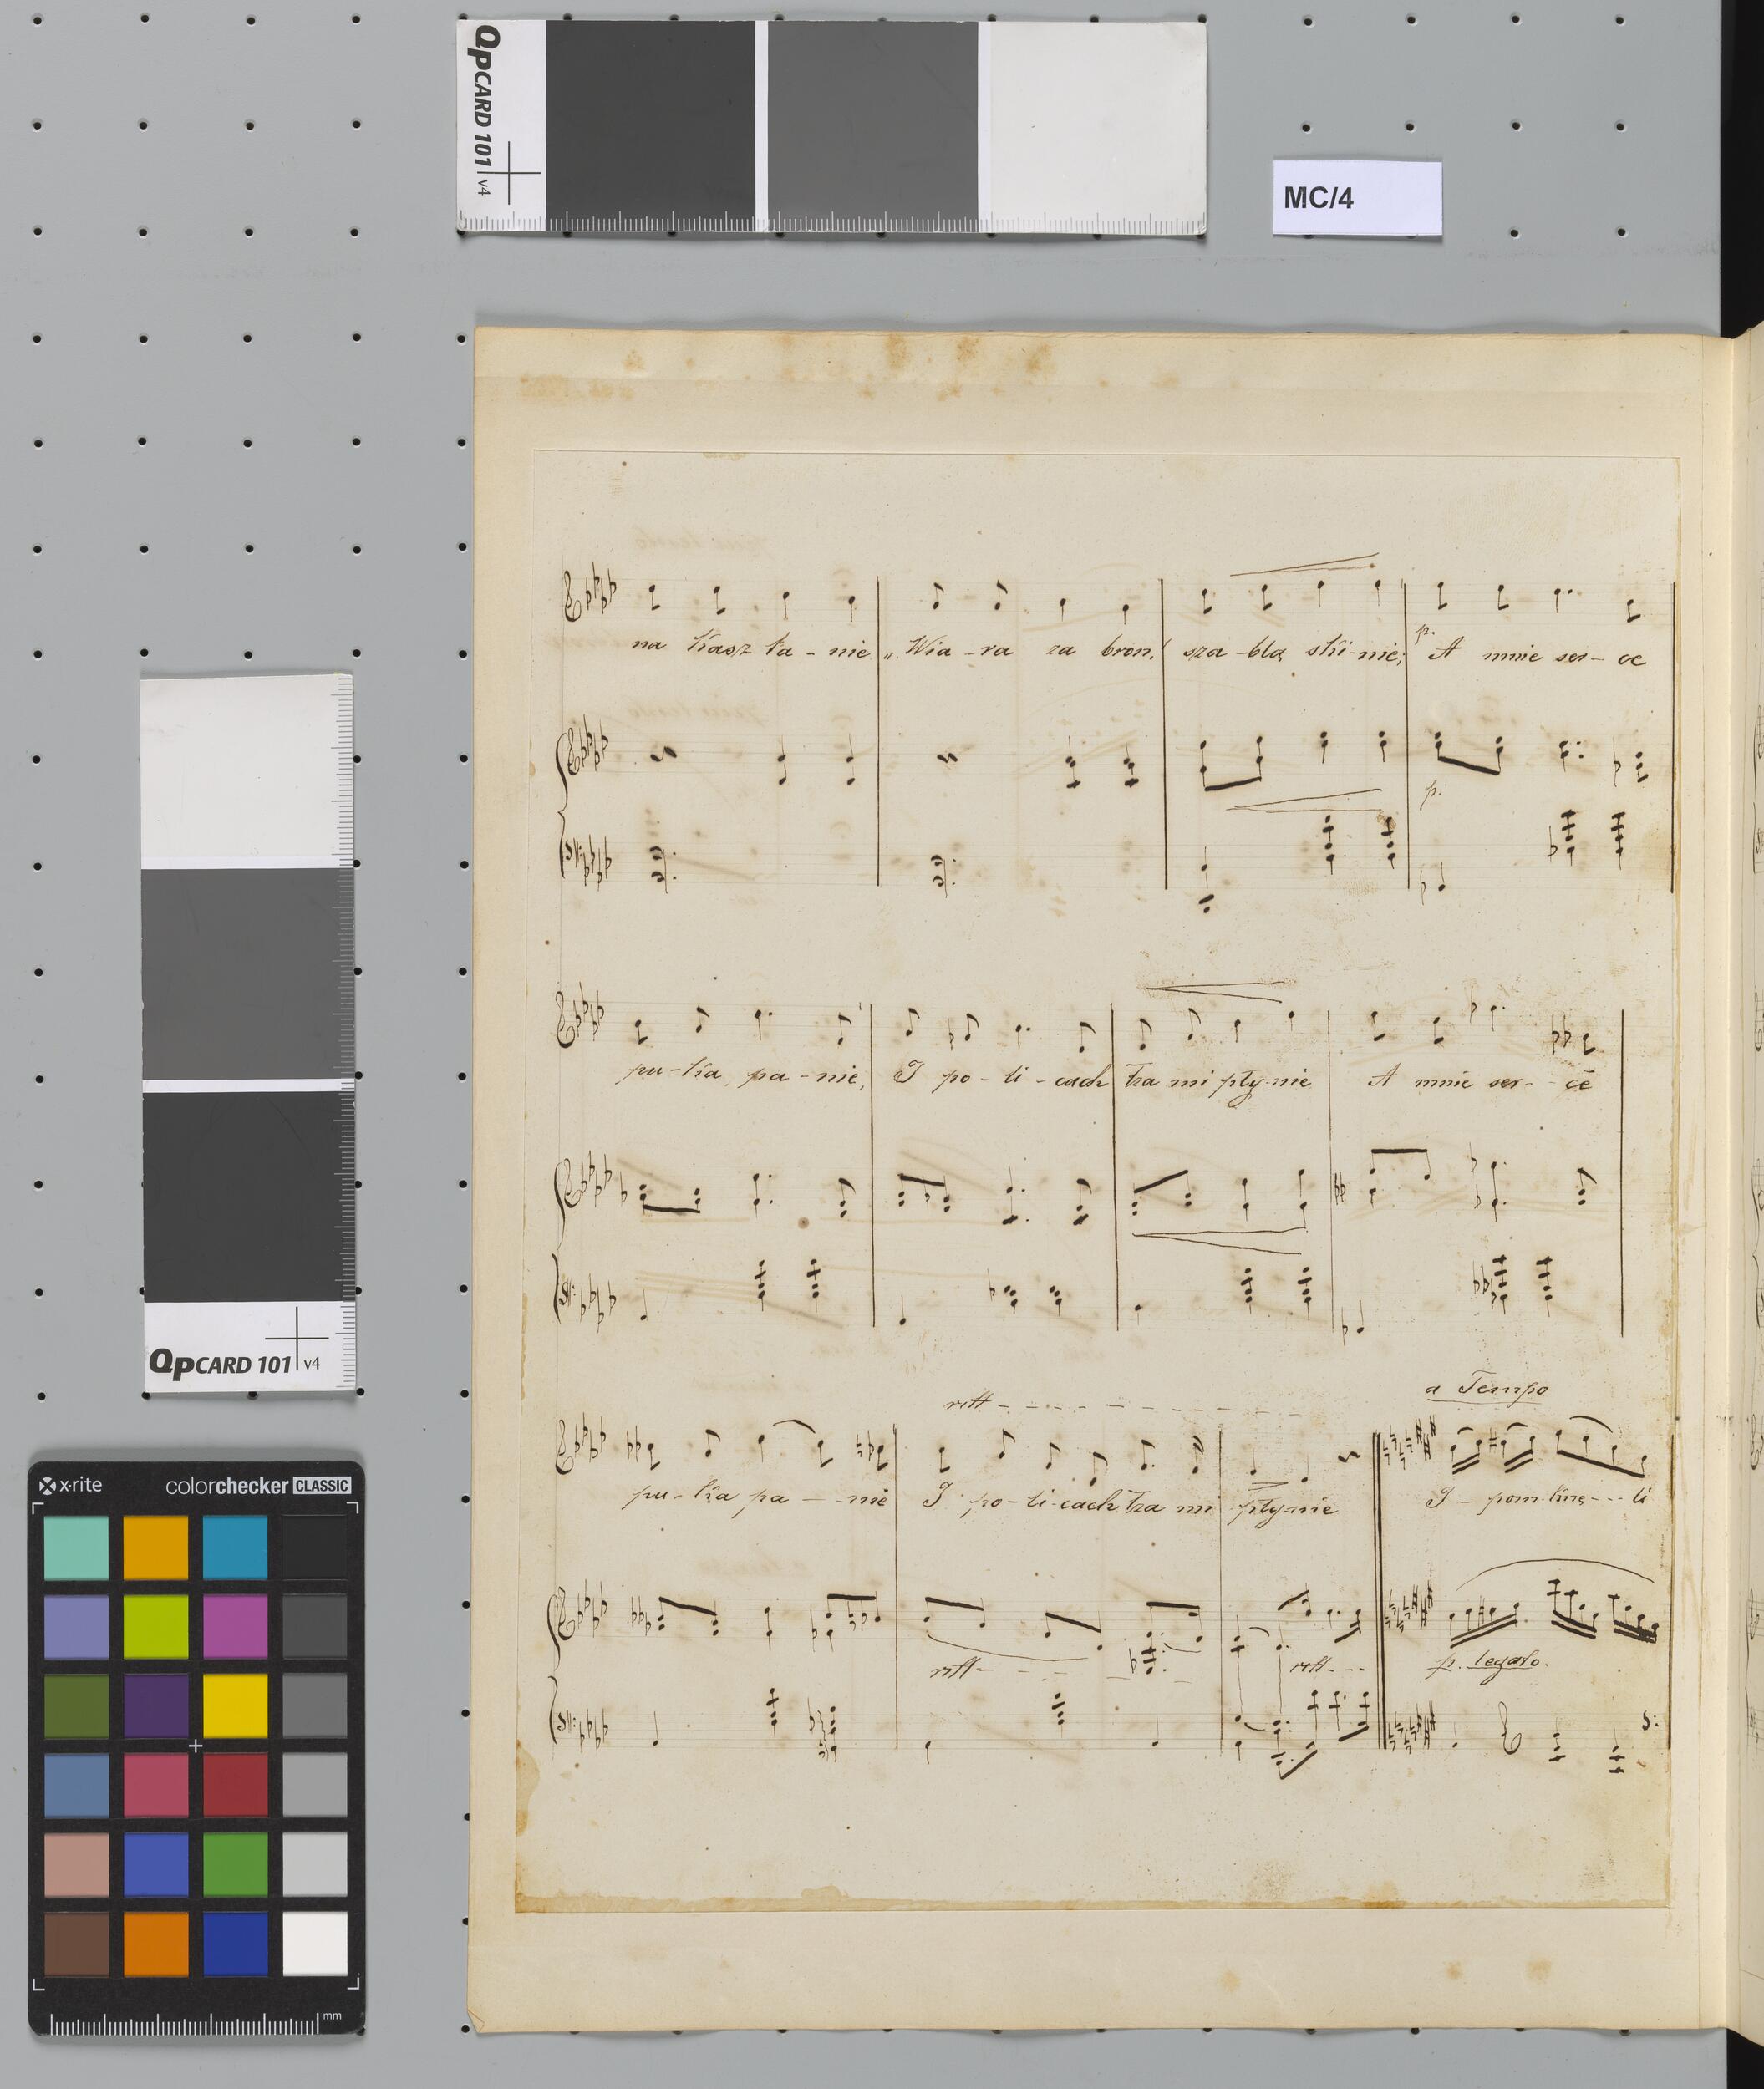 QpCARD 101 v4
MC/4
na kasz ta - nie „Wia - ra za bron! sza - blą ski - nie; A mnie ser - ce
p.
p.
pu - ka pa - nie, I po - li - cach łza mi pły - nie A mnie ser - - ce
QpCARD 101 v4
a Tempo
ritt - - - - - - - -
pu - ka pa - - nie I po - li - cach łza mi pły - nie I - pom - knę - - - li
ritt - - - - ritt - - - p. legato.
x·rite colorchecker CLASSIC
mm